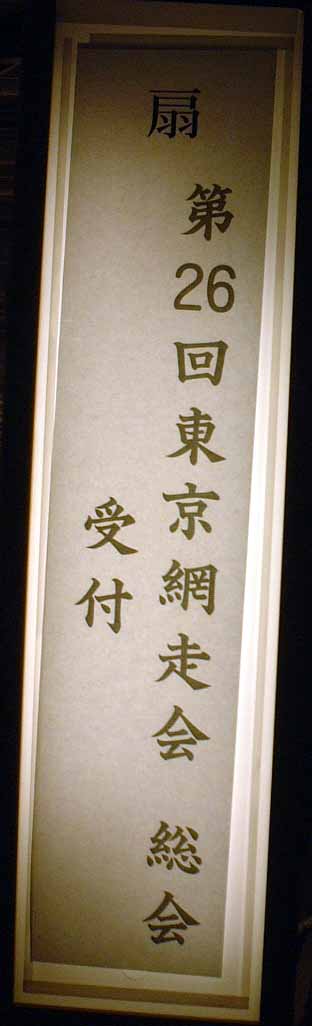 扇
第26回東京網走会 総会
受付